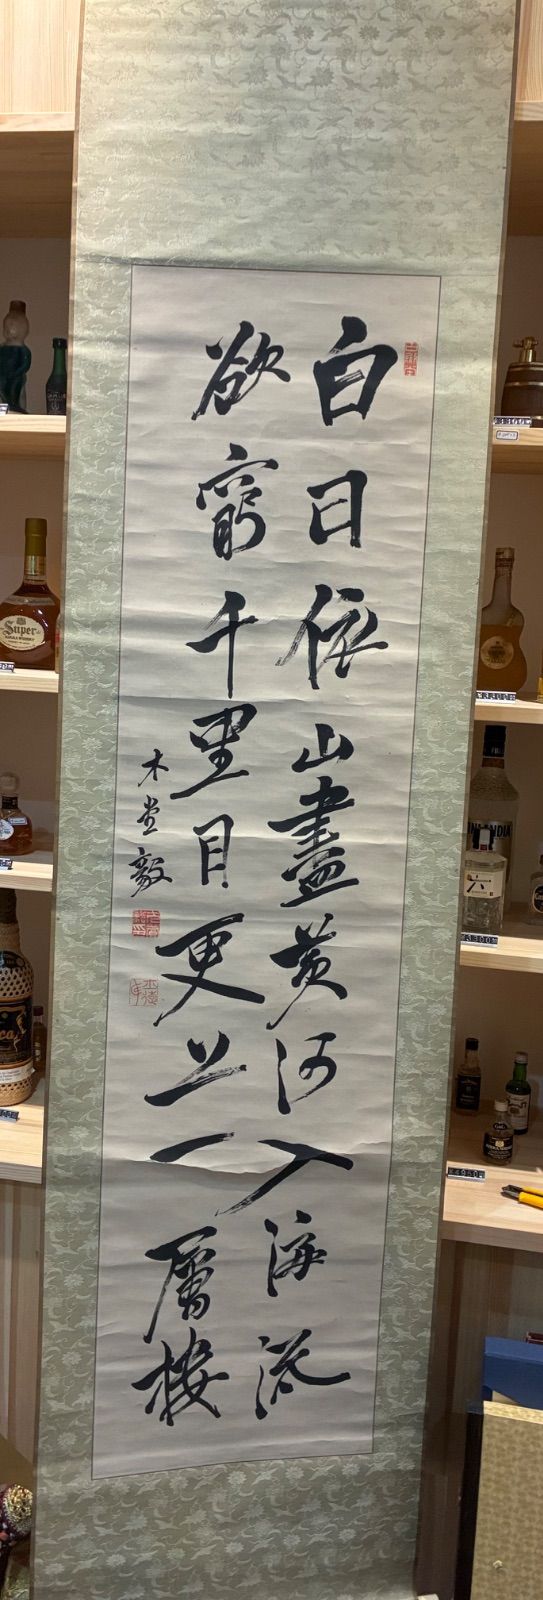 白日依山盡黃河入海流
欲窮千里目更上一層樓
木堂毅
Super
六